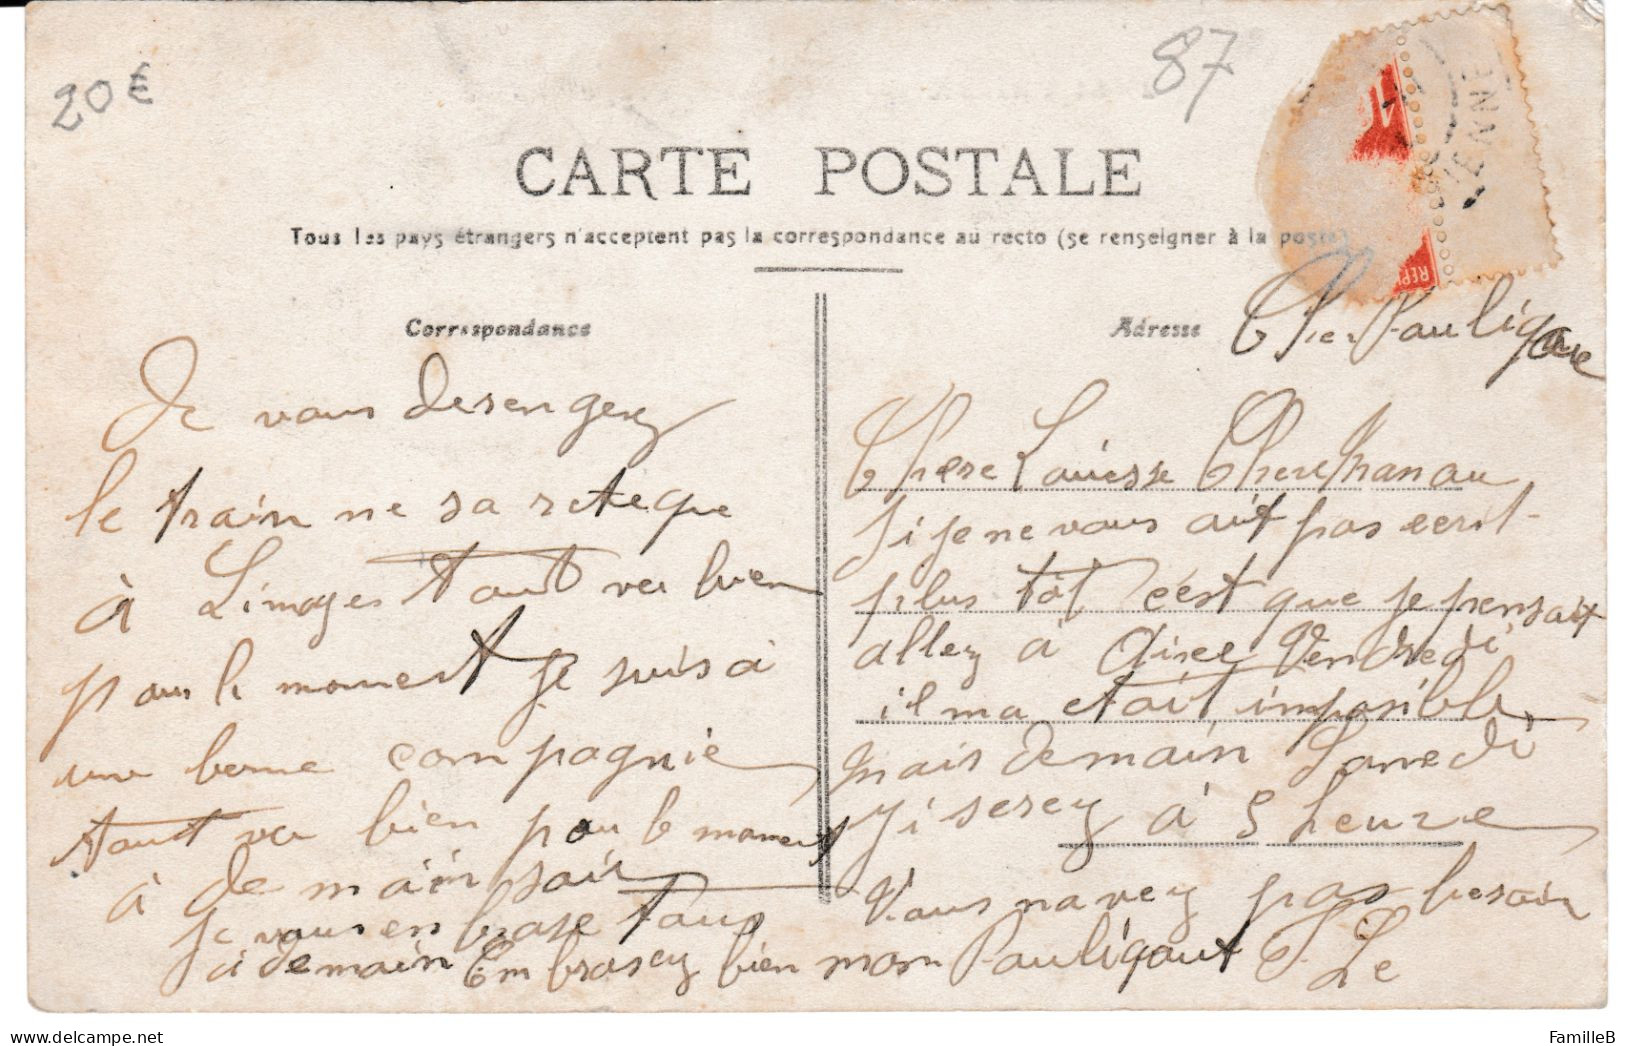 20€
87
CARTE POSTALE
Tous les pays étrangers n'acceptent pas la correspondance au recto (se renseigner à la poste)
Correspondance
Adresse
Chere Chere
si je ne vous ait pas ecrit
plus tôt c'est que je pensait
allez à Vendredi
il ma etait imposible
mais demain Samedi
j'i serez à 5 heure
Vous navez pas besoin
de vous
le train ne sa rete que
à Limoges tout va bien
pour le moment je suis à
une bonne compagnie
tout va bien pour le moment
à demain soir
Je vous enbrase tous
à demain Embrasez bien mon Le
VIENNE
REP
FamilleB